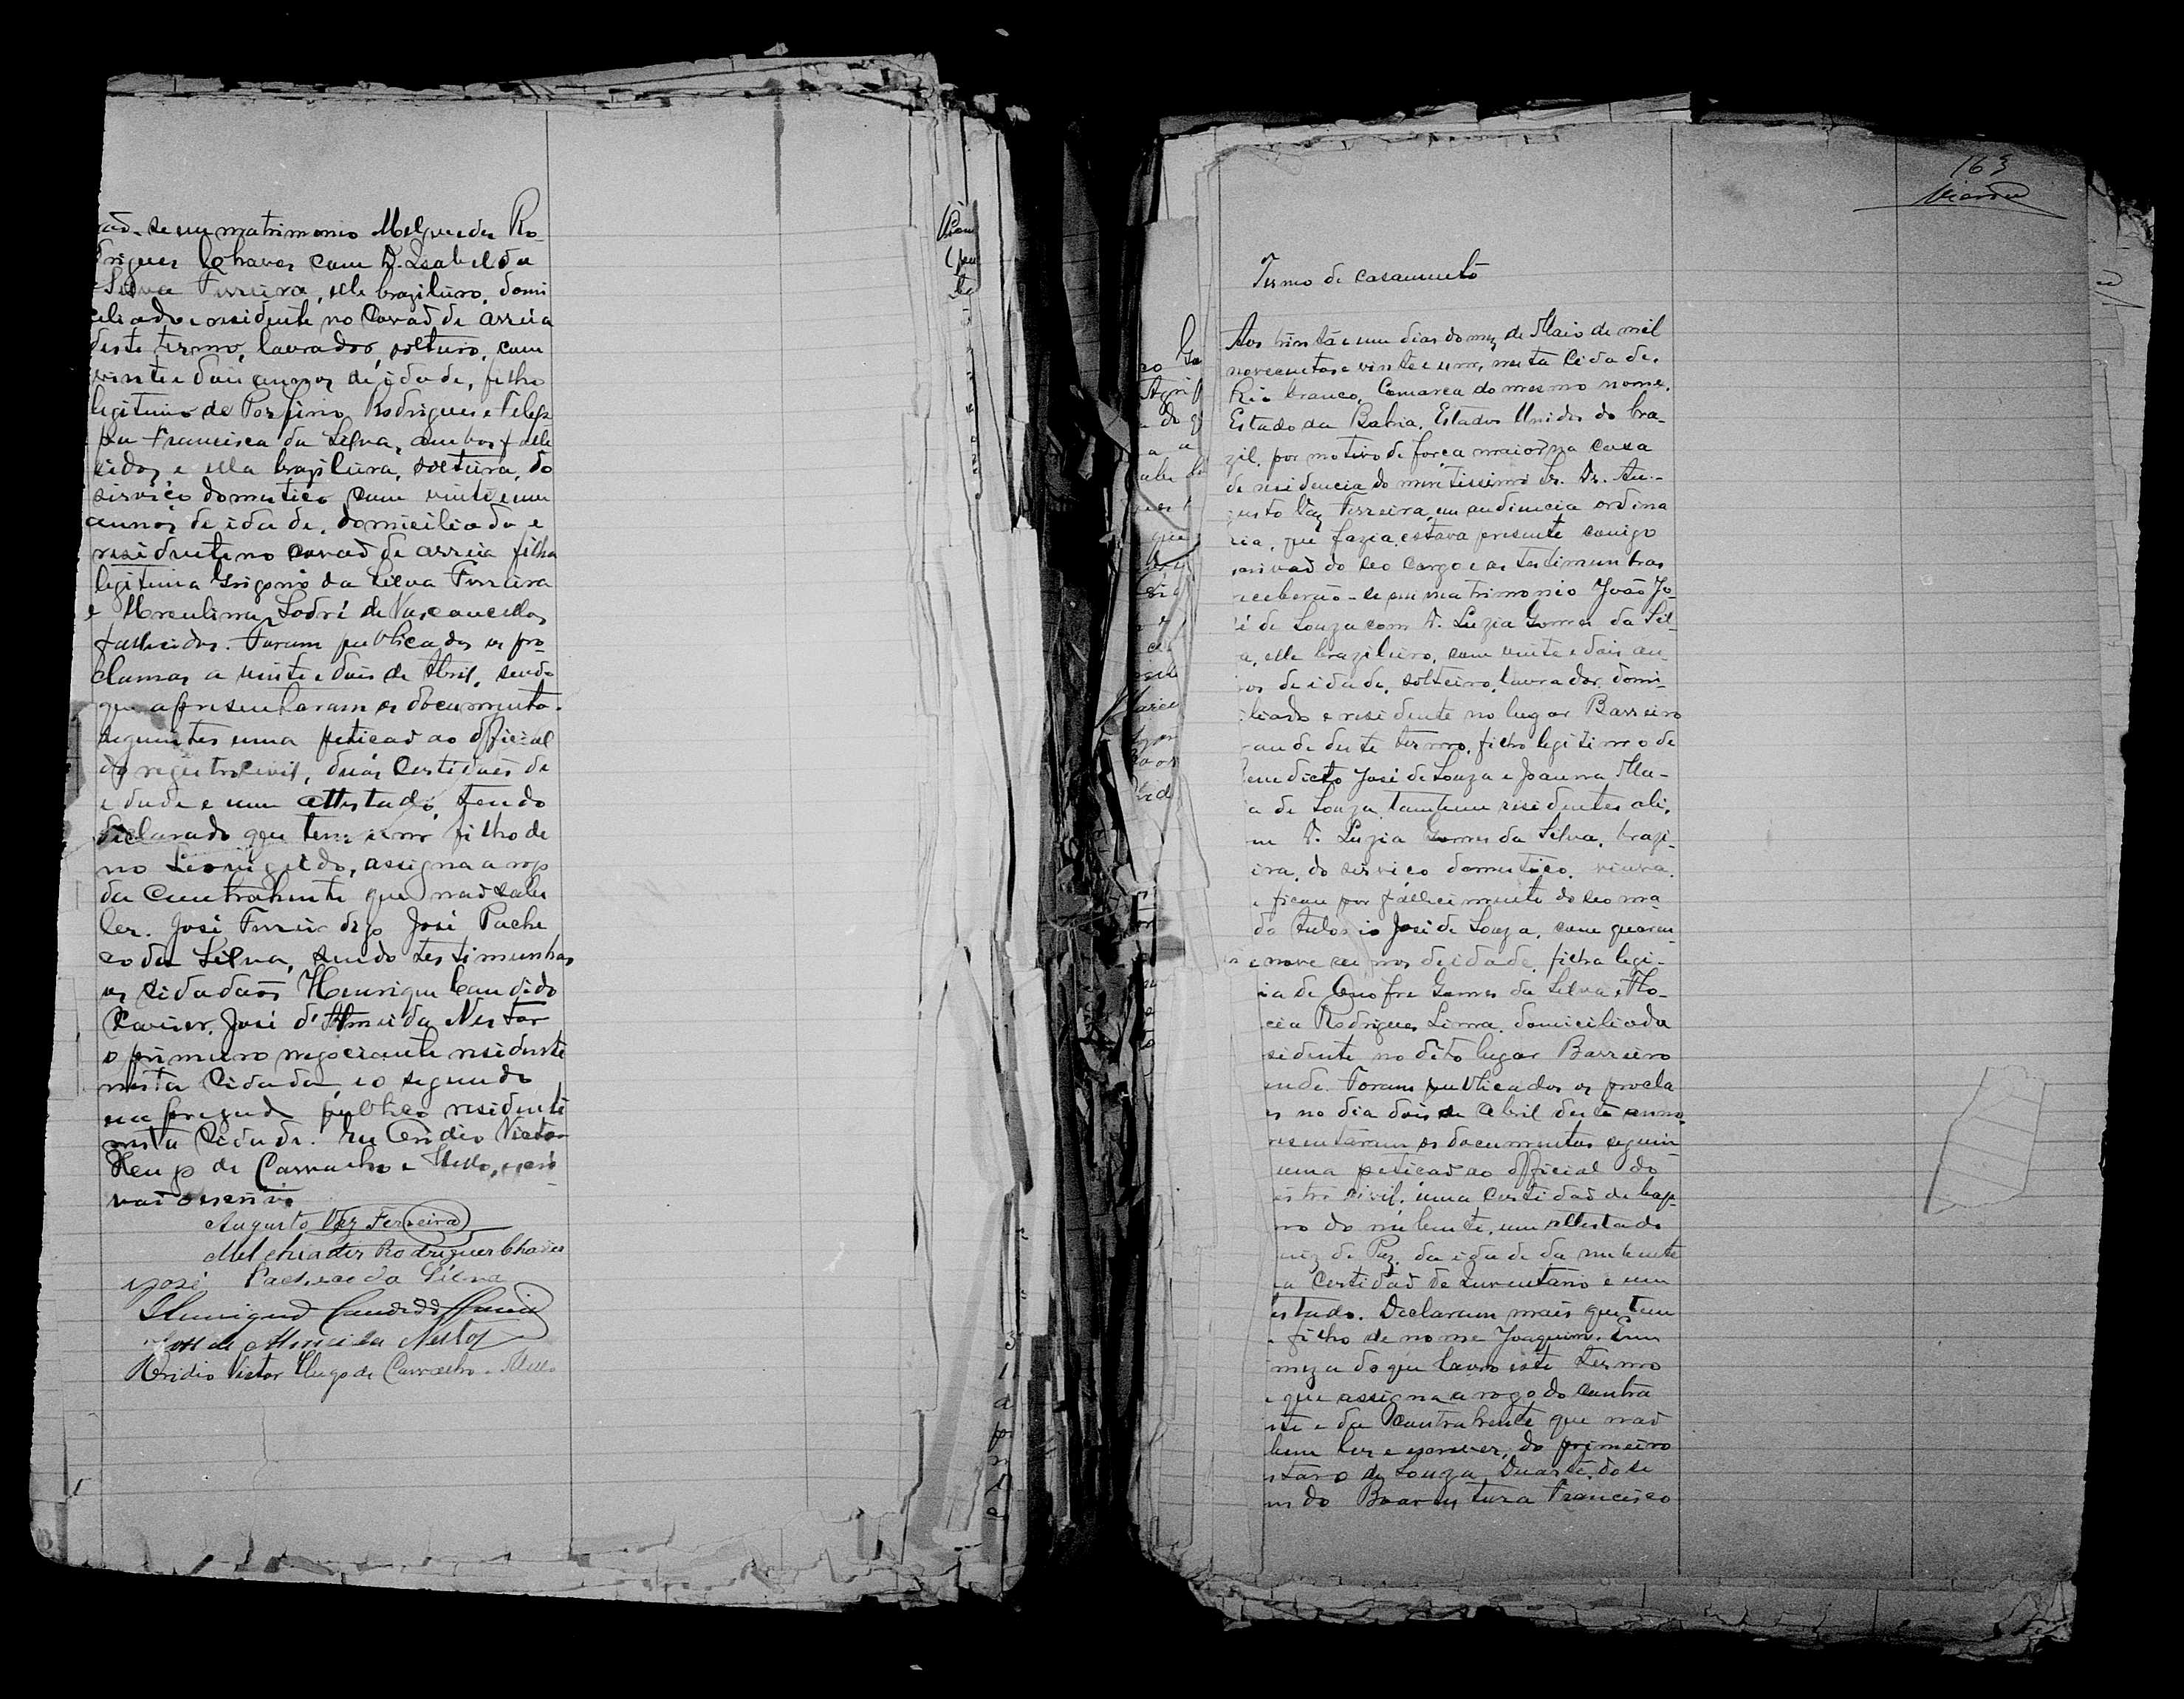 rão-se em matrimonio Melquiades Ro-
drigues Chaves com D. Isabel da
Silva Ferreira, elle brazileiro, domi
ciliado e residente no Covão de arreia
deste termo, lavrador, solteiro, com
vinte e dois annos de idade, filho
legitimo de Porfirio Rodrigues e
Francisca da Silva, ambos falle
cidos, e ella brazileira, solteira, do
serviço domestico com vinte e um
annos de idade, domiciliada e
residente no covão de arreia filha
legitima Grigorio da Silva Ferreira
e Marculina Sodré de Vasconcellos
fallecidos. Foram publicados os pro-
clamas a vinte e dois de Abril, sendo
que apresentaram os documentos
seguintes uma petição ao official
do registro civil, duas certidões de
idade e um attestado, tendo
declarado que tem um filho de
no Leonigildo, assigna a rogo
da contrahente que não sabe
ler. José Ferrei digo José Pache
co da Silva, sendo testimunhas
os cidadãos Henrique Candido
Xavier, José d'Almeida Nestor
o primeiro negociante residente
nesta cidade e o segundo
empregado publico residente
nesta cidade. Eu Ovidio Victor
Hugo de Carvalho e Mello, escri-
vão o escrevi
Augusto Vaz Ferreira
Melchiades Rodrigues Chaves
José Pacheco da Silva
Henrique Candido Xavier
José de Almeida Nestor
Ovidio Victor Hugo de Carvalho e Mello
163
Termo de casamento
Aos trinta e um dias do mez de Maio de mil
novecentos e vinte e um, nesta Cidade,
Rio branco, Comarca do mesmo nome,
Estado da Bahia, Estados Unidos do bra-
zil, por motivo de força maior na casa
de residencia do meritissimo Sr. Dr. Au-
gusto Vaz Ferreira, em audiencia ordina
ria, que fazia, estava presente comigo
escrivão do seo cargo e as testimunhas
receberão-se em matrimonio João Jo-
sé de Souza com D. Luzia Gomes da Sil-
a, elle brazileiro, com vinte e dois an-
nos de idade, solteiro, lavrador, domi-
ciliado e residente no lugar Barreiro
rande deste termo, filho legitimo de
Benedicto José de Souza e Joanna Ma-
a de Souza, tambem residentes ali,
m D. Luzia Gomes da Silva, brazi-
eira, do serviço domestico, viuva,
e ficou por fallecimento do seo ma-
do José de Souza, com quaren-
a e nove annos de idade, filha legi-
ia de Onofre Gomes da Silva e Ho-
cia Rodrigues Lima, domiciliada
sidente no dito lugar Barreiro
ande. Foram publicados os procla
s no dia dois de Abril deste anno
resentaram os documentos seguin-
uma petição ao official do
istro civil, uma certidão de bap-
mo do nubente, um attestado
uiz de Paz, da idade da nubente
a certidão de inventario e um
estado. Declaram mais que tem
filho de nome Joaquim. Em
meza do que lavro este termo
e que assigna a rogo do contra
nte e da contrahente que não
bem ler e escrever, do primeiro
stavo de Souza Duarte, do se
ndo Boaventura Francisco